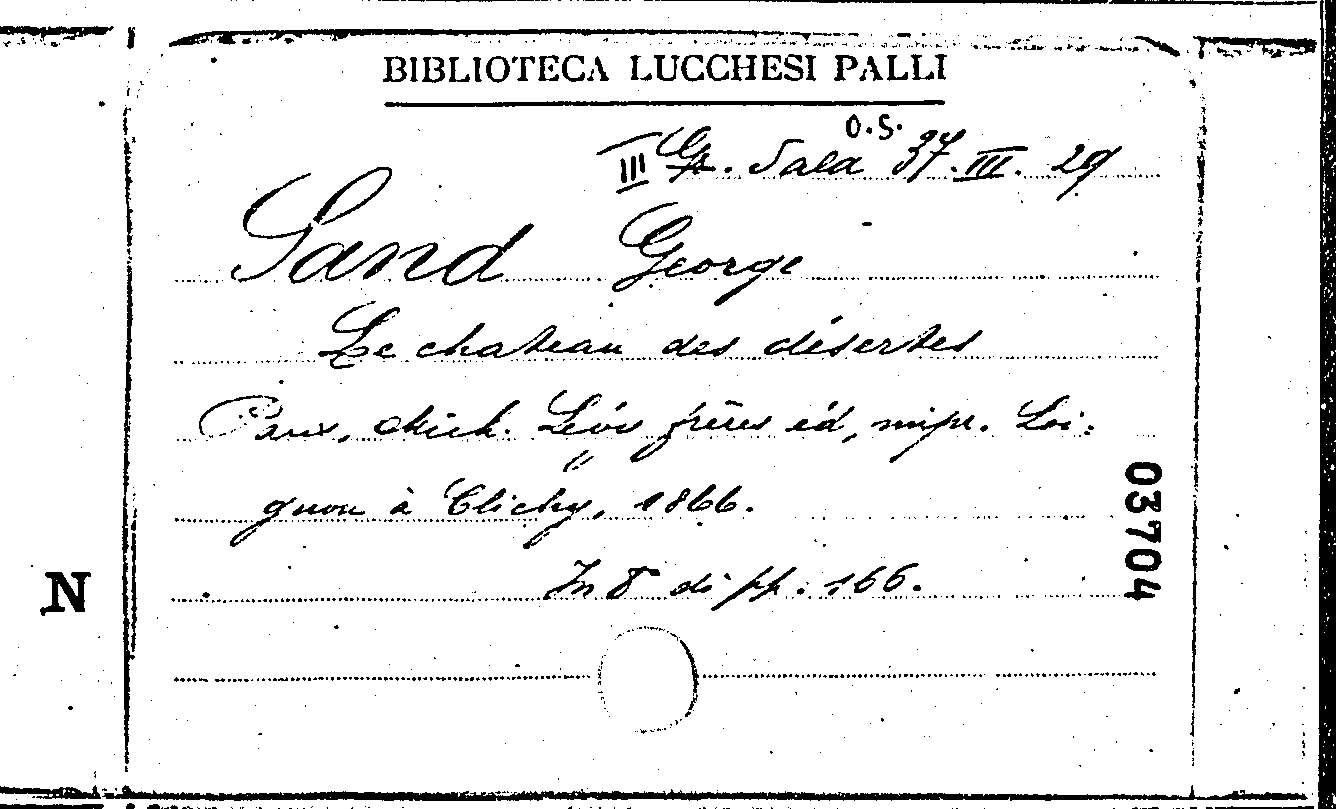 BIBLIOTECA LUCCHESI PALLI
O.S.
III Gr. Sala 37.III. 29
Sand George
Le chateau des désertes
Paris, Mich. Lévy frères éd, impr. Loi:
gnon à Clichy, 1866.
In 8° di pp. 166.
03704
N